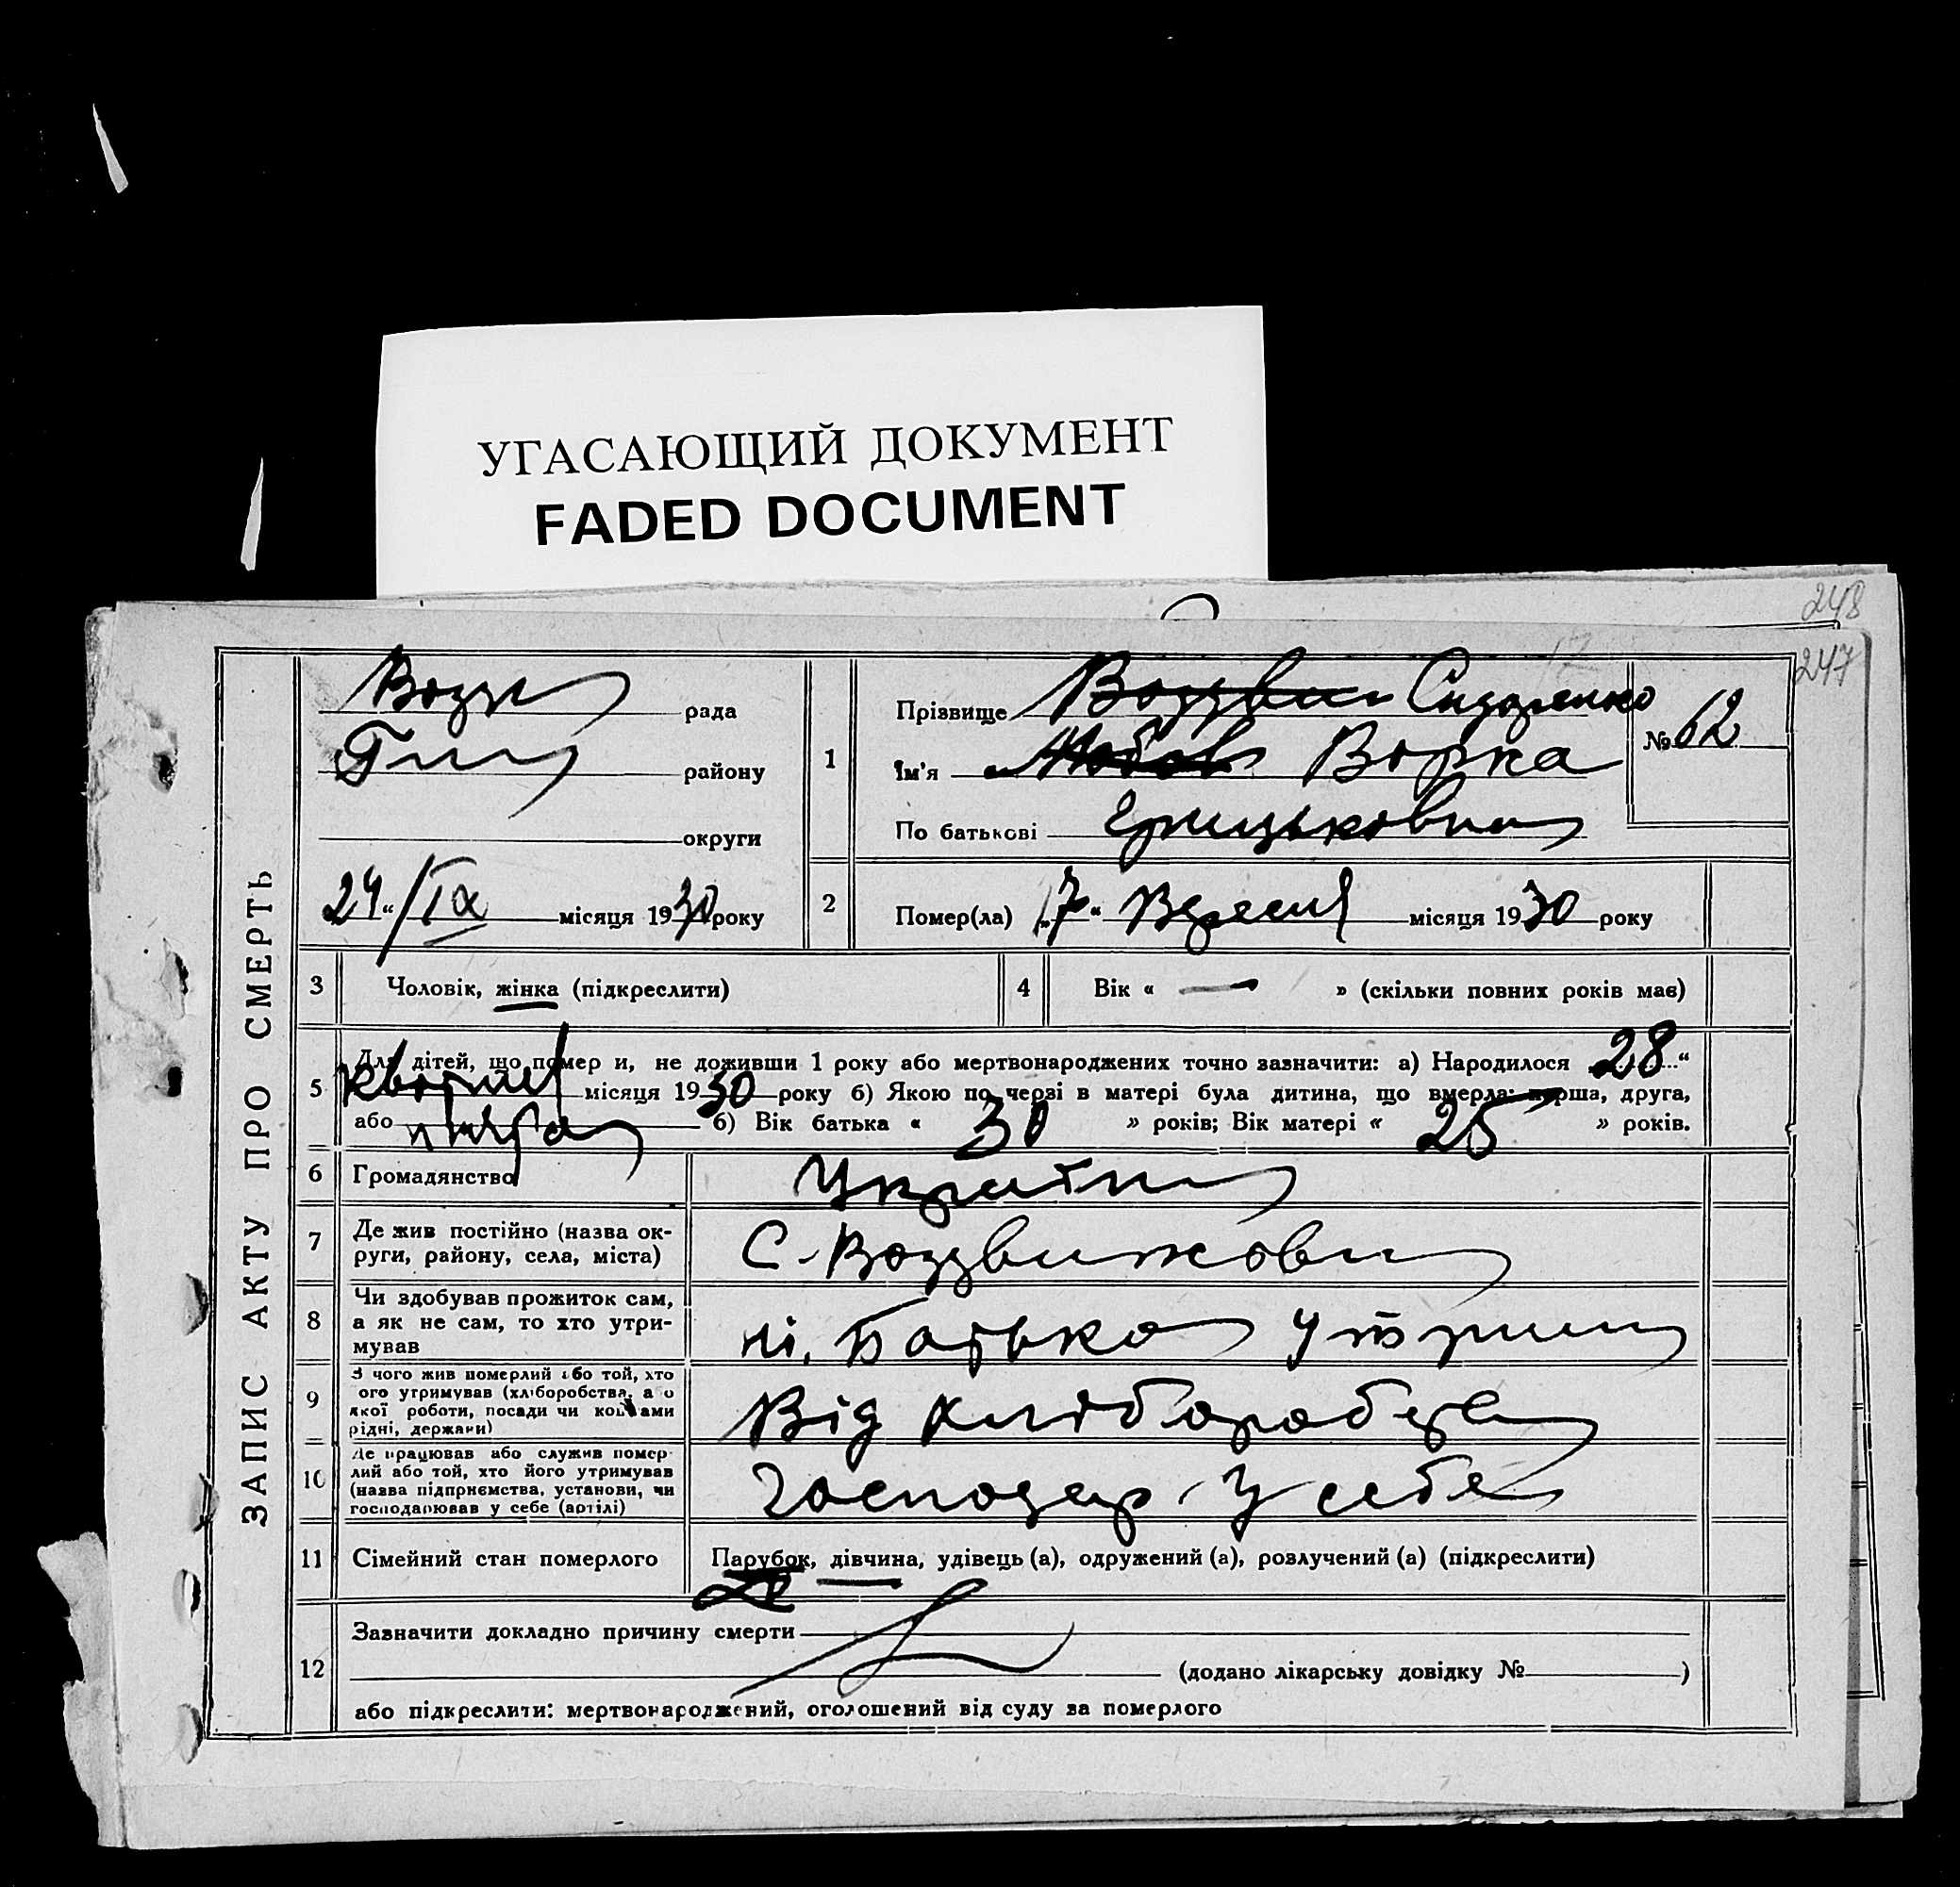 УГАСАЮЩИЙ ДОКУМЕНТ
FADED DOCUMENT
248
247
ЗАПИС АКТУ ПРО СМЕРТЬ
рада
району
округи
24 "/IX місяця 1930 року
1
Прізвище Сидоренко
Ім'я Ворка
По батькові Грицьковна
№ 62
2
Помер(ла) „7" Вересня місяця 1930 року
3 Чоловік, жінка (підкреслити)
4 Вік « — » (скільки повних років має)
5 Для дітей, що померли, не доживши 1 року або мертвонароджених точно зазначити: а) Народилося 28 "
місяця 1930 року б) Якою по черзі в матері була дитина, що вмерла: перша, друга,
або б) Вік батька « 30 » років; Вік матері « 25 » років.
6 Громадянство
7 Де жив постійно (назва ок-
руги, району, села, міста)
С. Воздвижовка
8 Чи здобував прожиток сам,
а як не сам, то хто утри-
мував
ні, Батько утрим
9 З чого жив померлий або той, хто
його утримував (хліборобства, а о
якої роботи, посади чи коштами
рідні, держави)
Від
10 Де працював або служив помер-
лий або той, хто його утримував
(назва підприємства, установи, чи
господарював у себе (артілі)
Господар у себе
11 Сімейний стан померлого
Парубок, дівчина, удівець (а), одружений (а), розлучений (а) (підкреслити)
12 Зазначити докладно причину смерти
(додано лікарську довідку № )
або підкреслити: мертвонароджений, оголошений від суду за померлого